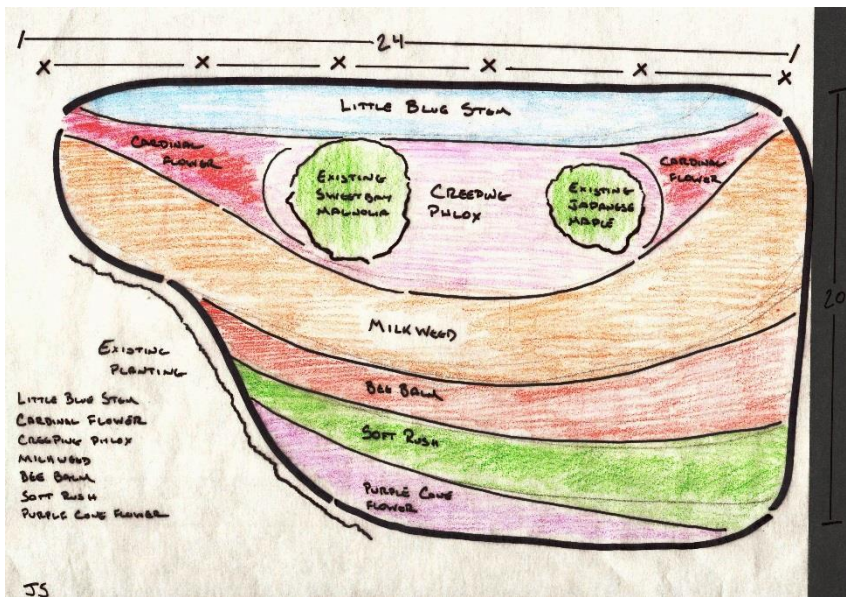 24
X X X X X X
LITTLE BLUE STEM
CARDINAL
FLOWER
EXISTING
SWEETBAY
MAGNOLIA
CREEPING
PHLOX
EXISTING
JAPANESE
MAPLE
CARDINAL
FLOWER
20
MILKWEED
EXISTING
PLANTING
BEE BALM
SOFT RUSH
PURPLE CONE
FLOWER
LITTLE BLUE STEM
CARDINAL FLOWER
CREEPING PHLOX
MILKWEED
BEE BALM
SOFT RUSH
PURPLE CONE FLOWER
JS